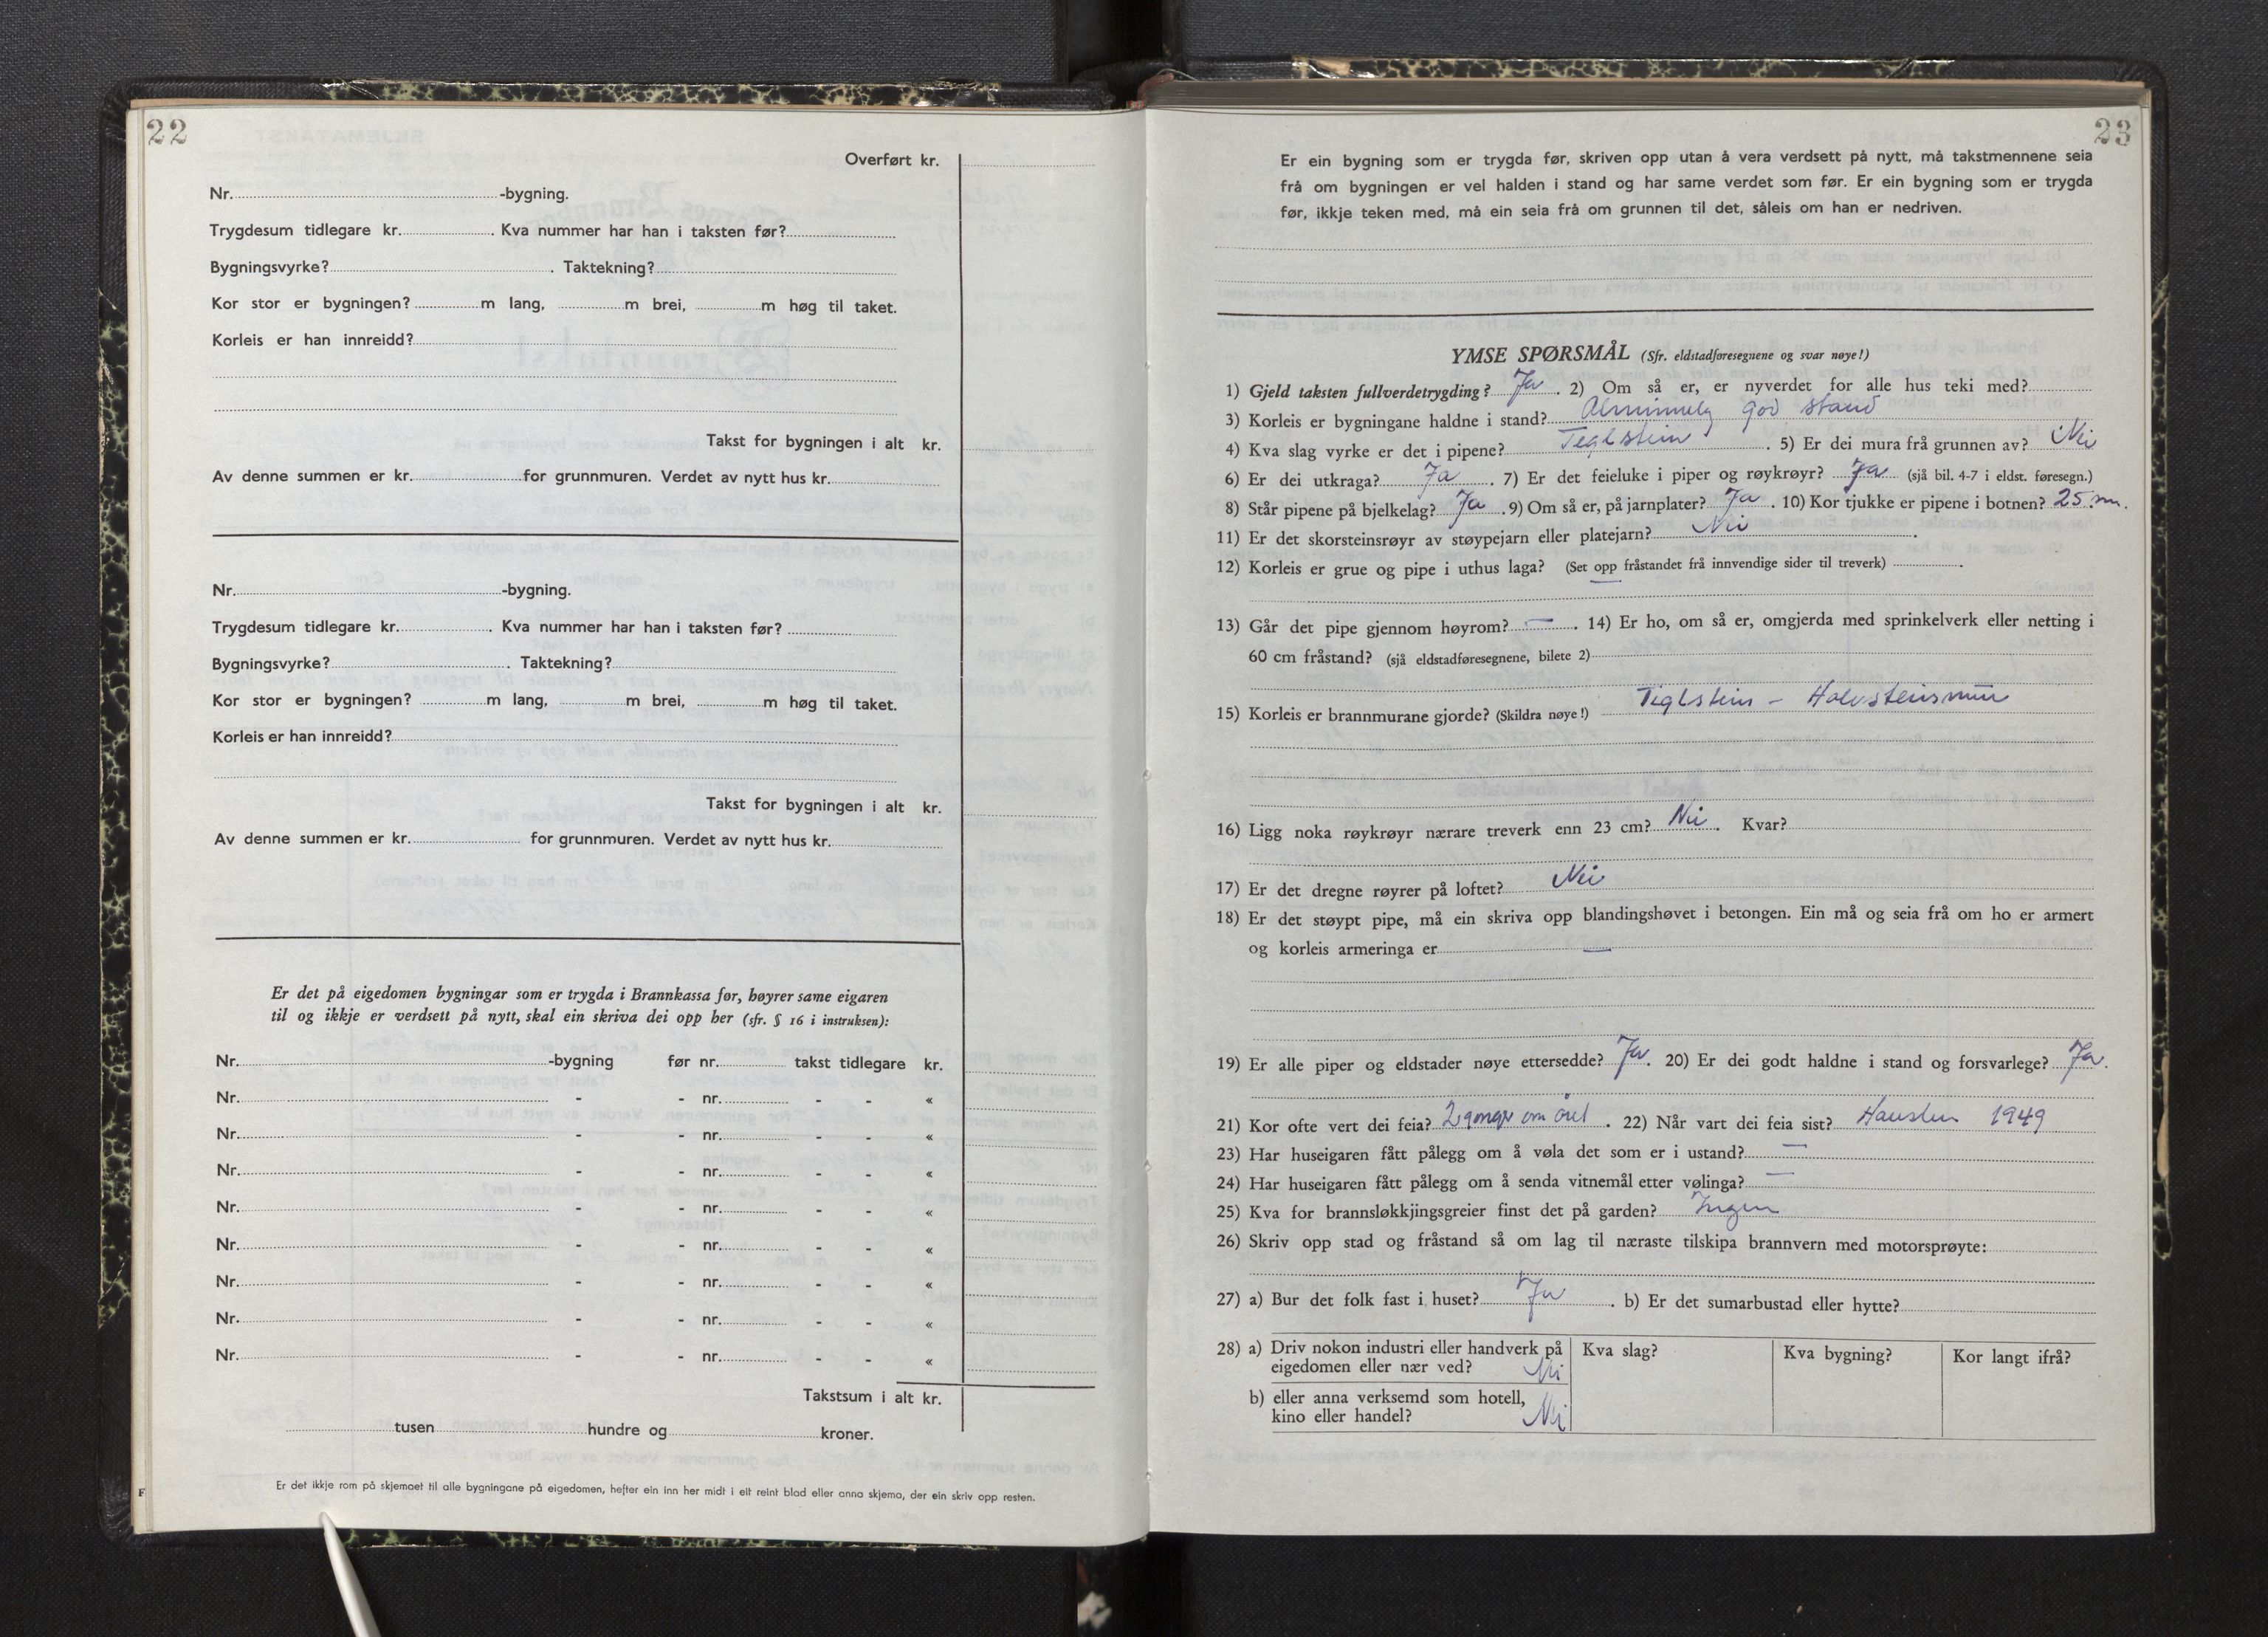 22
Overført kr.
Nr. -bygning.
Trygdesum tidlegare kr. . Kva nummer har han i taksten før?
Bygningsvyrke? . Taktekning?
Kor stor er bygningen? m lang, m brei, m høg til taket.
Korleis er han innreidd?
Takst for bygningen i alt kr.
Av denne summen er kr. for grunnmuren. Verdet av nytt hus kr.
Nr. -bygning.
Trygdesum tidlegare kr. . Kva nummer har han i taksten før?
Bygningsvyrke? . Taktekning?
Kor stor er bygningen? m lang, m brei, m høg til taket.
Korleis er han innreidd?
Takst for bygningen i alt kr.
Av denne summen er kr. for grunnmuren. Verdet av nytt hus kr.
Er det på eigedomen bygningar som er trygda i Brannkassa før, høyrer same eigaren
til og ikkje er verdsett på nytt, skal ein skriva dei opp her (sfr. § 16 i instruksen):
Nr. -bygning før nr. takst tidlegare kr.
Nr. - - nr. - - «
Nr. - - nr. - - «
Nr. - - nr. - - «
Nr. - - nr. - - «
Nr. - - nr. - - «
Nr. - - nr. - - «
Nr. - - nr. - - «
Nr. - - nr. - - «
Takstsum i alt kr.
tusen hundre og kroner.
Er det ikkje rom på skjemaet til alle bygningane på eigedomen, hefter ein inn her midt i eit reint blad eller anna skjema, der ein skriv opp resten.
F
23
Er ein bygning som er trygda før, skriven opp utan å vera verdsett på nytt, må takstmennene seia
frå om bygningen er vel halden i stand og har same verdet som før. Er ein bygning som er trygda
før, ikkje teken med, må ein seia frå om grunnen til det, såleis om han er nedriven.
YMSE SPØRSMÅL (Sfr. eldstadføresegnene og svar nøye!)
1) Gjeld taksten fullverdetrygding? Ja . 2) Om så er, er nyverdet for alle hus teki med?
3) Korleis er bygningane haldne i stand? Alminnely god stand
4) Kva slag vyrke er det i pipene? Teglstein . 5) Er dei mura frå grunnen av? Nei
6) Er dei utkraga? Ja . 7) Er det feieluke i piper og røykrøyr? Ja (sjå bil. 4-7 i eldst. føresegn.)
8) Står pipene på bjelkelag? Ja . 9) Om så er, på jarnplater? Ja . 10) Kor tjukke er pipene i botnen? 25 m.
11) Er det skorsteinsrøyr av støypejarn eller platejarn? Nei .
12) Korleis er grue og pipe i uthus laga? (Set opp fråstandet frå innvendige sider til treverk) .
—
13) Går det pipe gjennom høyrom? — . 14) Er ho, om så er, omgjerda med sprinkelverk eller netting i
60 cm fråstand? (sjå eldstadføresegnene, bilete 2)
15) Korleis er brannmurane gjorde? (Skildra nøye!) Teglstein – Halvsteinsmur
16) Ligg noka røykrøyr nærare treverk enn 23 cm? Nei . Kvar?
17) Er det dregne røyrer på loftet? Nei
18) Er det støypt pipe, må ein skriva opp blandingshøvet i betongen. Ein må og seia frå om ho er armert
og korleis armeringa er —
19) Er alle piper og eldstader nøye ettersedde? Ja . 20) Er dei godt haldne i stand og forsvarlege? Ja .
21) Kor ofte vert dei feia? 2 ganger om året . 22) Når vart dei feia sist? Hausten 1949
23) Har huseigaren fått pålegg om å vøla det som er i ustand? —
24) Har huseigaren fått pålegg om å senda vitnemål etter vølinga? —
25) Kva for brannsløkkjingsgreier finst det på garden? Ingen
26) Skriv opp stad og fråstand så om lag til næraste tilskipa brannvern med motorsprøyte:
27) a) Bur det folk fast i huset? Ja . b) Er det sumarbustad eller hytte?
28) a) Driv nokon industri eller handverk på Kva slag? Kva bygning? Kor langt ifrå?
eigedomen eller nær ved? Nei
b) eller anna verksemd som hotell,
kino eller handel? Nei